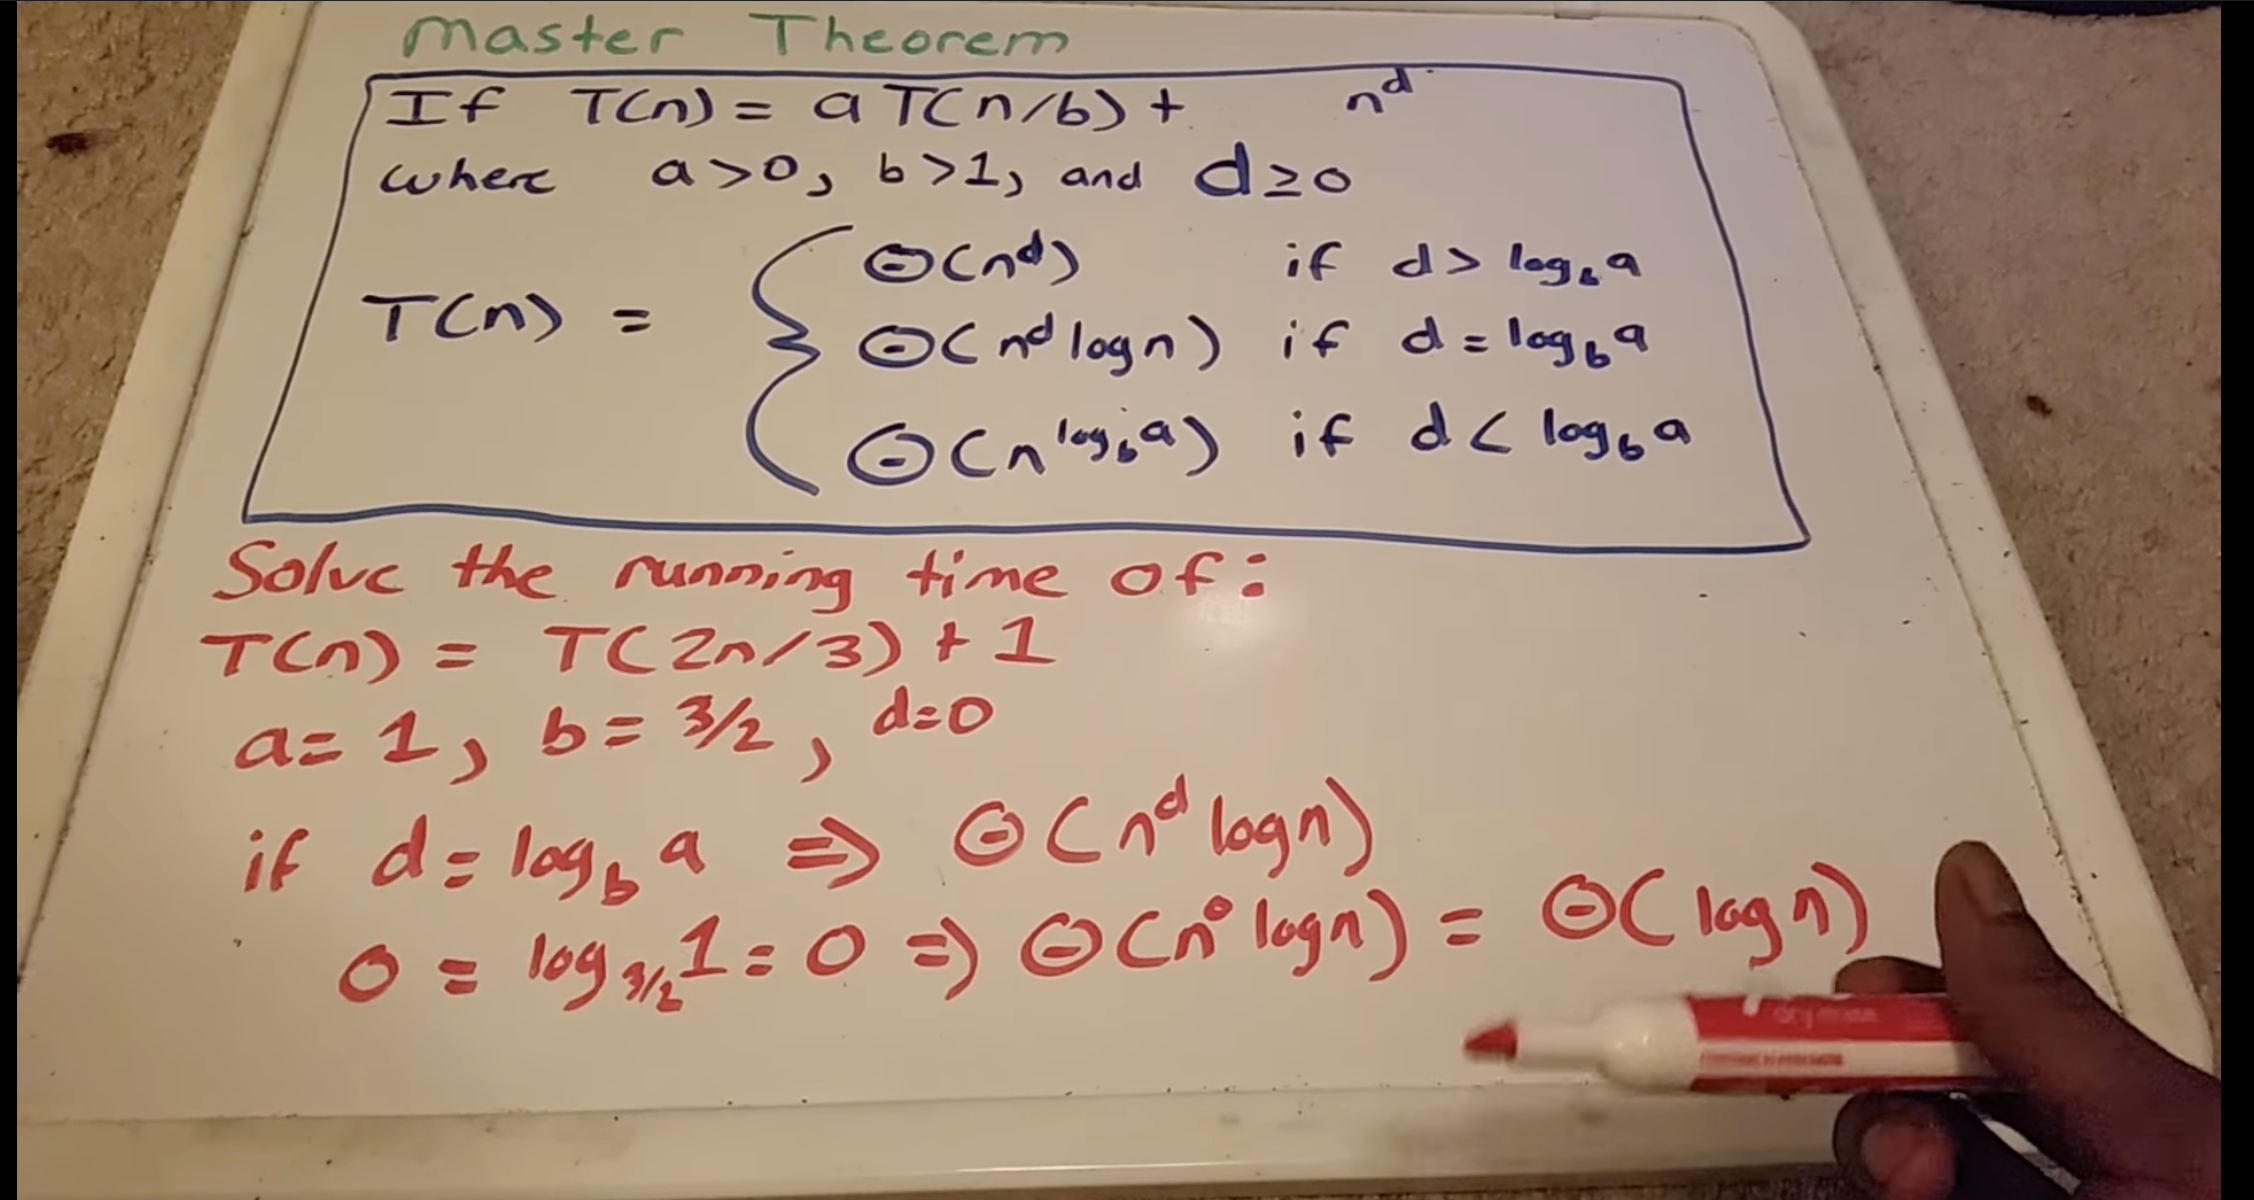 Master Theorem
If T(n) = a T(n/b) + n^d
where a>0, b>1, and d≥0
T(n) =
Θ(n^d) if d > log_b a
Θ(n^d log n) if d = log_b a
Θ(n^log_b a) if d < log_b a
Solve the running time of:
T(n) = T(2n/3) + 1
a = 1, b = 3/2, d=0
if d = log_b a ⇒ Θ(n^d log n)
0 = log_3/2 1 = 0 ⇒ Θ(n^0 log n) = Θ(log n)